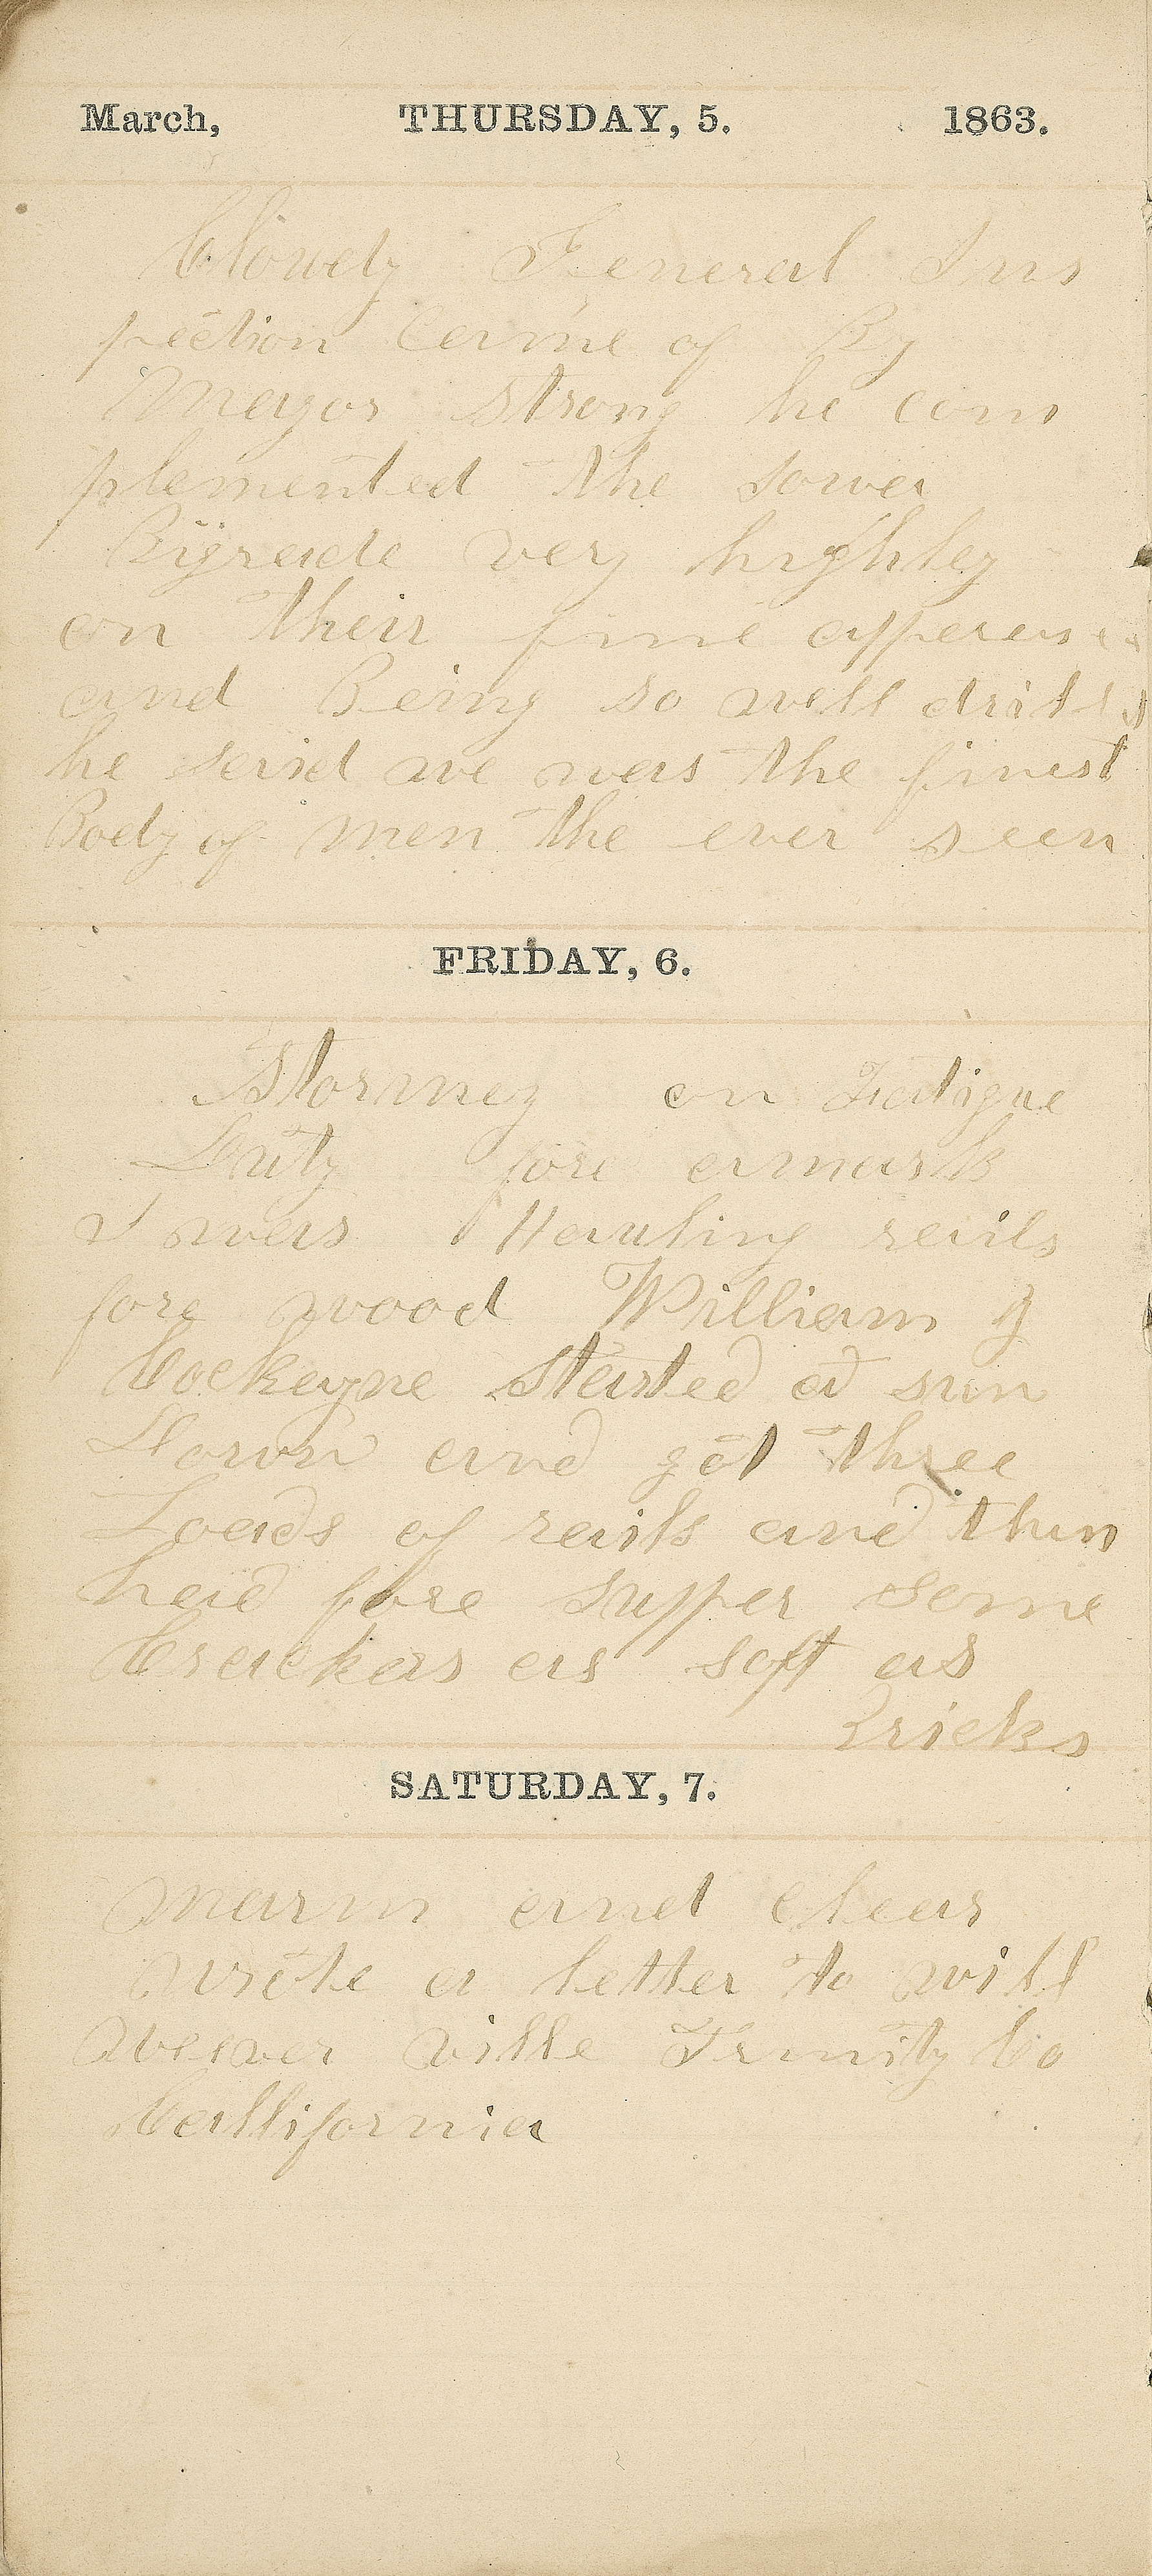 March, THURSDAY, 5. 1863.
Clowdy General Ins
pection Came of By
Mayor strong he com
plemented the Iowa
Bigrade very highley
on their fine apperanc
and Being so well drilld
he said we was the finest
Body of men the ever seen
FRIDAY, 6.
Stormey on Fatigue
Duty fore
I was Hauling rails
fore wood William J
Cockayne started at sun
Down and got three
Loads of rails and then
had fore supper some
Crackers as soft as
Bricks
SATURDAY, 7.
warm and clear
wrote a letter to will
weaver ville Trinity Co
Callifornia